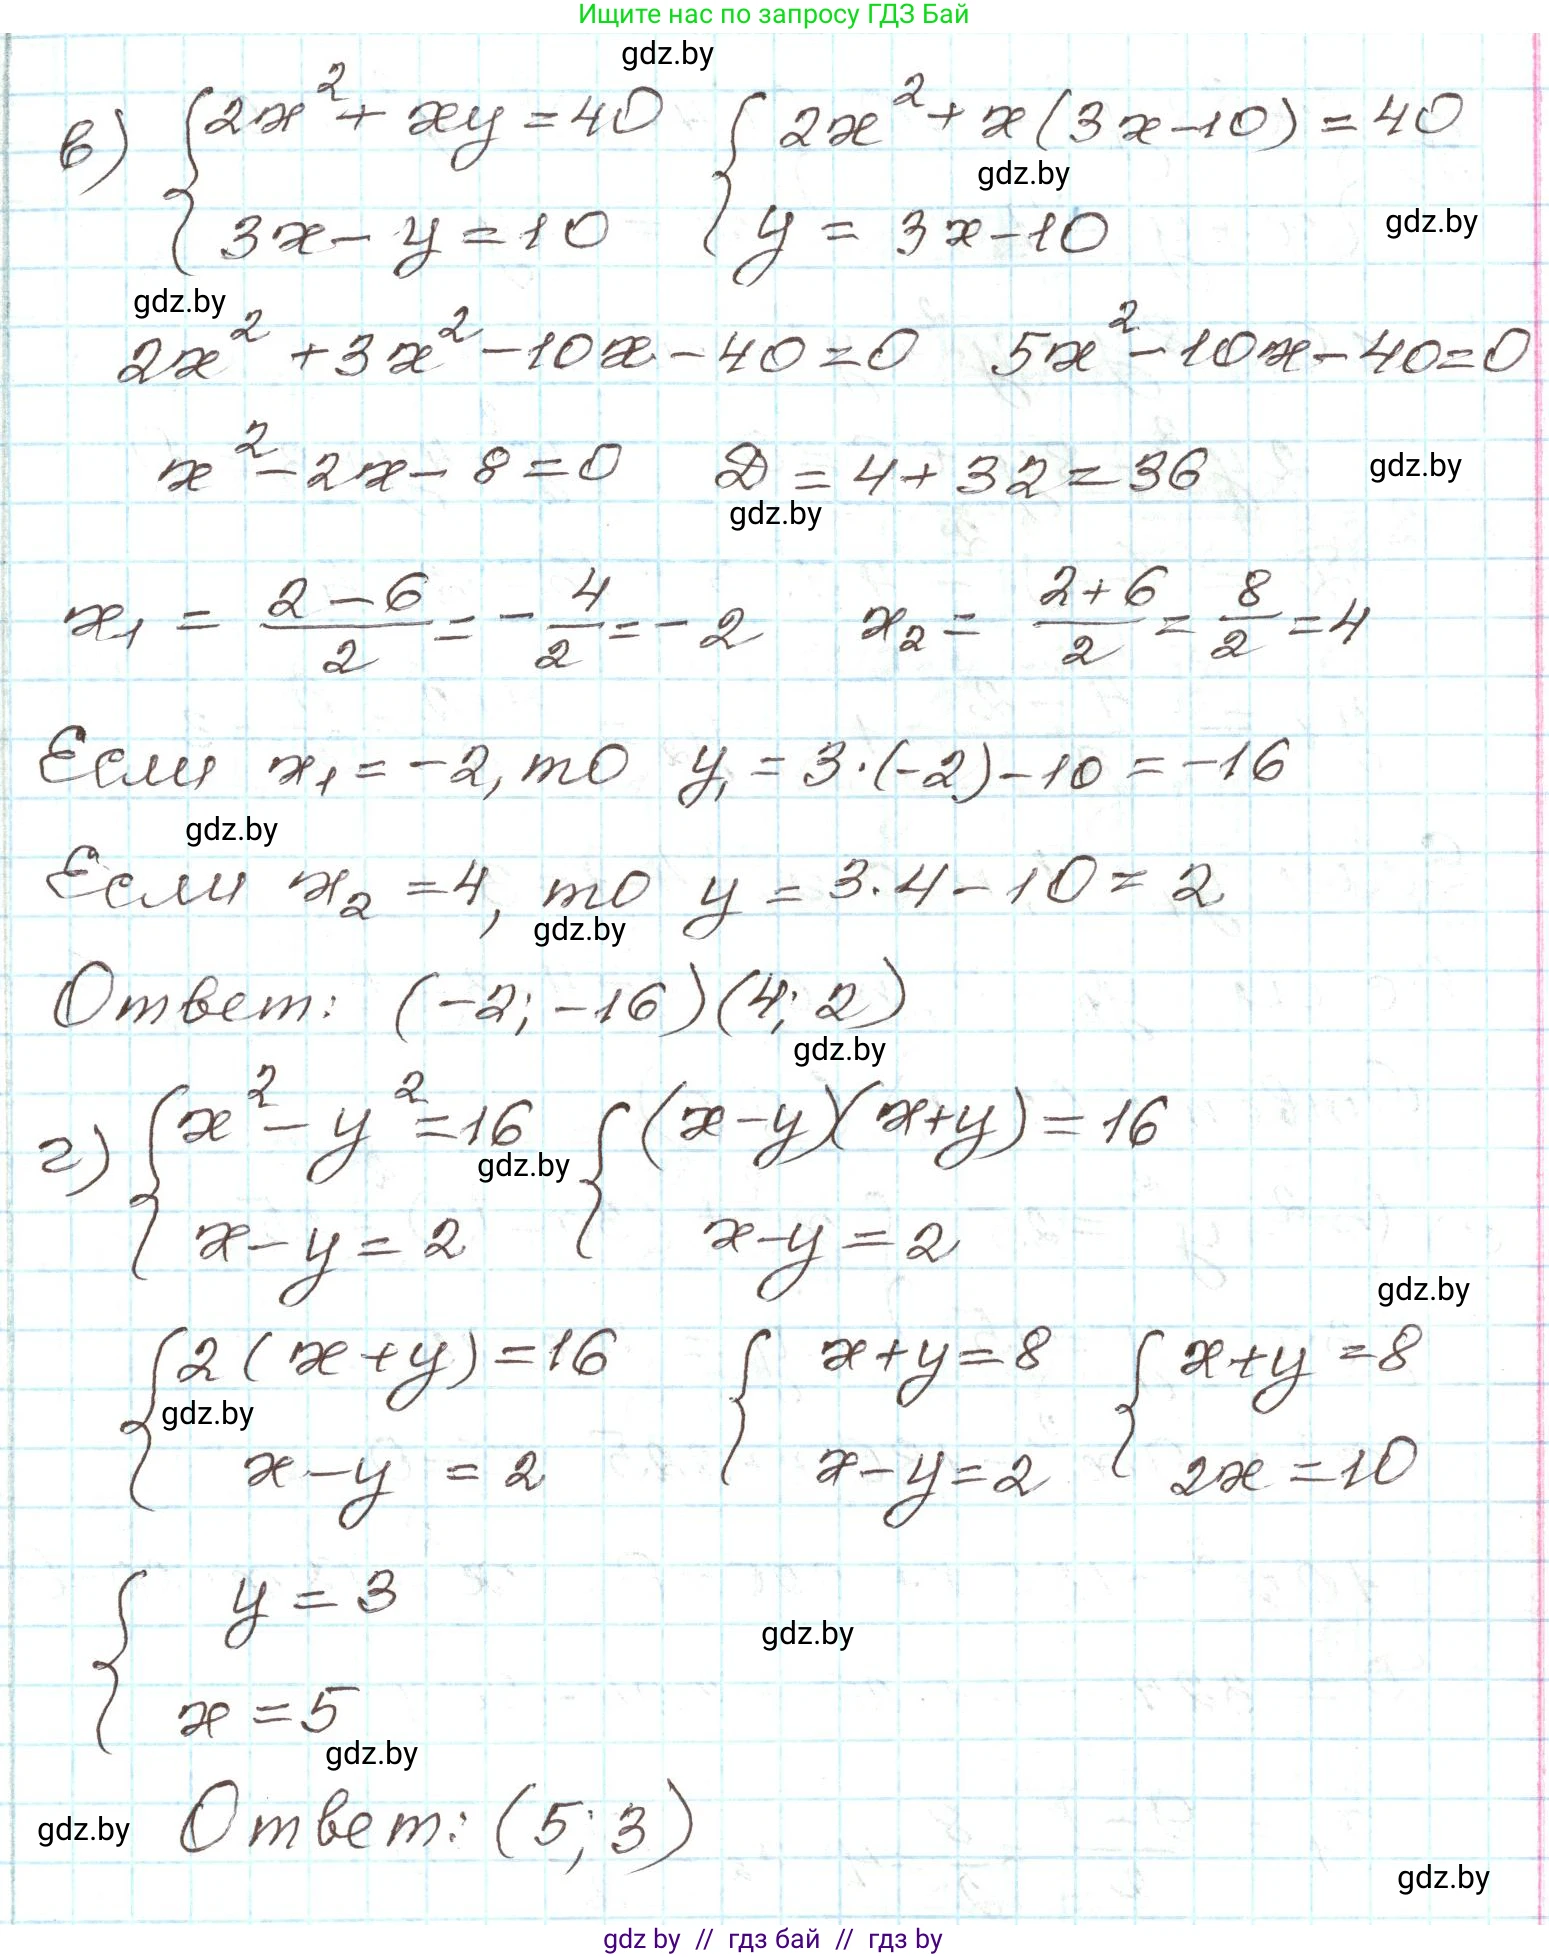 Ищите нас по запросу ГДЗ Бай
gdz.by
в) { 2x² + xy = 40   { 2x² + x(3x-10) = 40
gdz.by
3x - y = 10   y = 3x-10
gdz.by
gdz.by
2x² + 3x² - 10x - 40 = 0   5x² - 10x - 40 = 0
x² - 2x - 8 = 0   D = 4 + 32 = 36
gdz.by
gdz.by
x₁ = (2 - 6)/2 = - 4/2 = - 2   x₂ = (2+6)/2 = 8/2 = 4
Если x₁ = -2, то y₁ = 3·(-2) - 10 = -16
gdz.by
Если x₂ = 4, то y = 3·4 - 10 = 2
gdz.by
Ответ: (-2; -16) (4; 2)
gdz.by
г) { x² - y² = 16   { (x-y)(x+y) = 16
gdz.by
x - y = 2   x-y = 2
gdz.by
{ 2(x+y) = 16   { x+y = 8   { x+y = 8
gdz.by
x-y = 2   x-y = 2   2x = 10
{ y = 3
gdz.by
x = 5
gdz.by
Ответ: (5; 3)
gdz.by
gdz.by
gdz by // гдз бай // гдз by